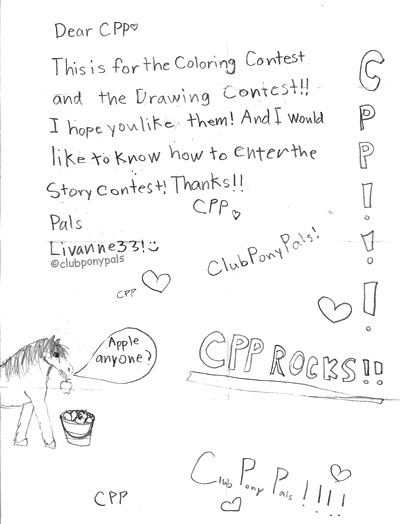 Dear CPP♡
This is for the Coloring Contest
and the Drawing Contest!!
I hope you like them! And I would
like to know how to enter the
Story Contest! Thanks!!
Pals
Livanne33!
©clubponypals
CPP
CPP!!!
ClubPonyPals!
CPP
Apple
anyone?
CPP ROCKS!!
Club Pony Pals!!!!
CPP